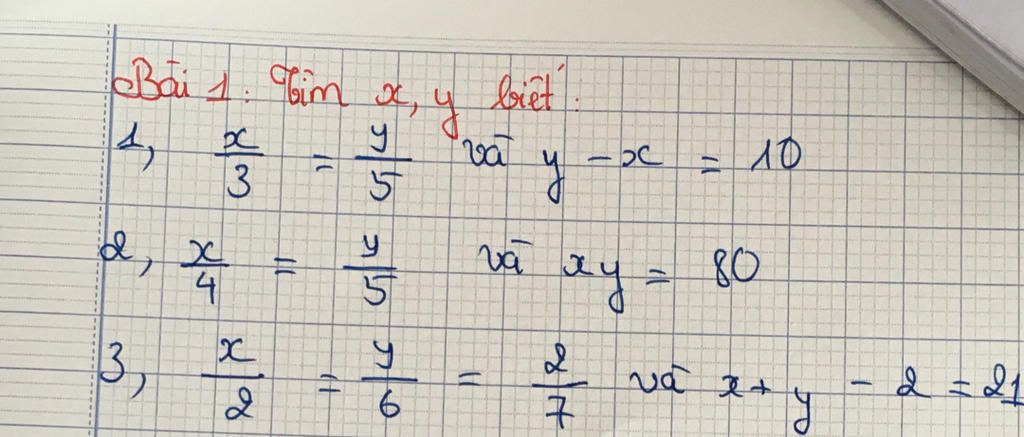 Bài 1: Tìm x, y biết:
1, x/3 = y/5 và y - x = 10
2, x/4 = y/5 và xy = 80
3, x/2 = y/6 = 2/7 và x + y - 2 = 21